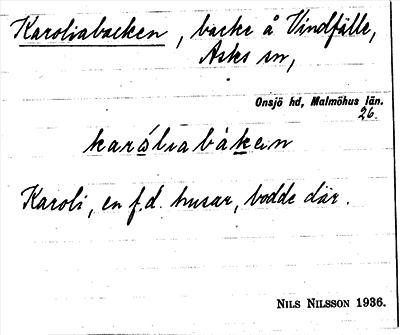 Karoliabacken, backe å Vindfälle,
Asks sn,
Onsjö hd, Malmöhus län.
26.
karóliabàkan
Karoli, en f.d. husar, bodde där.
NILS NILSSON 1936.